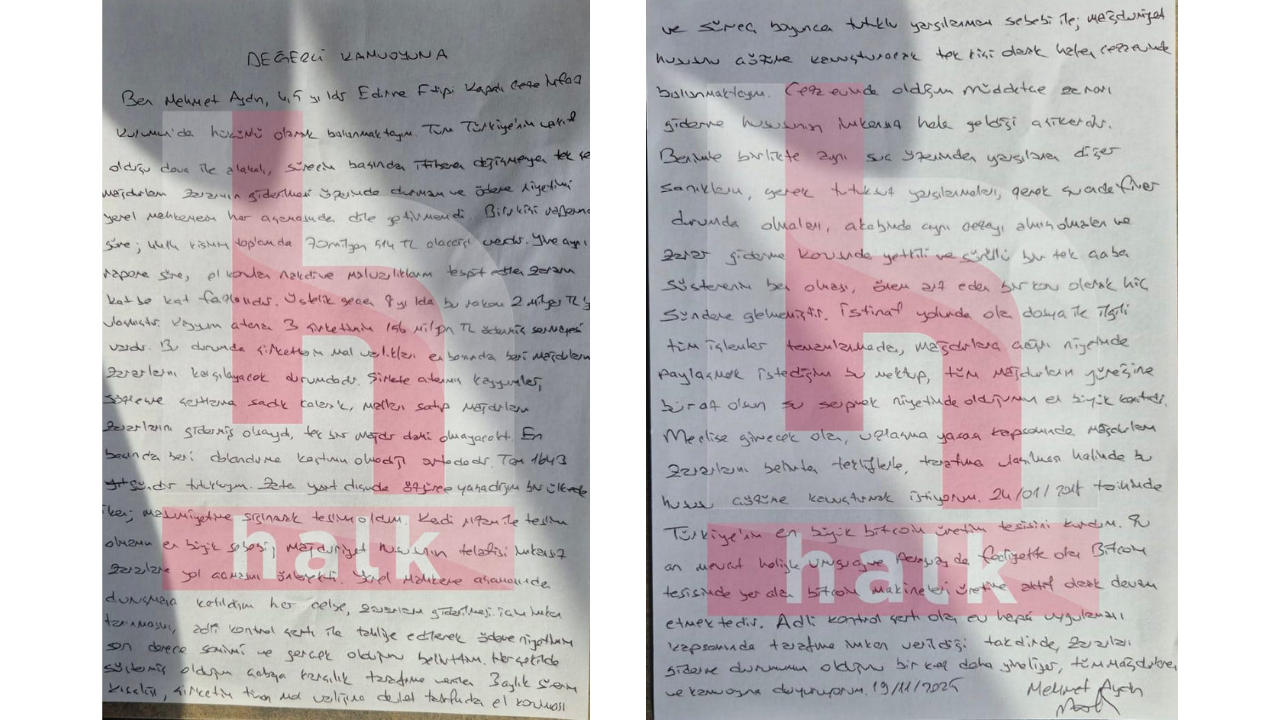 DEĞERLİ KAMUOYUNA
Ben Mehmet Aydın, 4,5 yıldır Edirne F tipi Kapalı Ceza İnfaz
Kurumu'da hükümlü olarak bulunmaktayım. Tüm Türkiye'nin vakıf
olduğu dava ile alakalı, sürecin başından itibaren değişmeyen tek
mağdurların zararının giderilmesi üzerinde durmam ve ödeme niyetimi
yerel mahkemenin her aşamasında dile getirmemdi. Bilirkişi raporuna
göre; toplamda milyon TL olacağı verdir. Yine aynı
rapora göre, el konulan nakdi ve malvarlıklarım tespit edilen zararın
kat be kat fazlasıdır. Üstelik geçen yılda bu rakam 2 milyar TL'ye
ulaşmıştır. Kayyum atanan 3 şirketimin milyon TL ödenmiş sermayesi
vardı. Bu durumda şirketlerin mal varlıkları en başından beri mağdurların
zararlarını karşılayacak durumdadır. Şirkete atanan kayyumlar,
sözleşme şartlarına sadık kalarak, malları satıp mağdurların
zararlarını gidermiş olsaydı, tek bir mağdur dahi olmayacaktı. En
başından beri dolandırma kastımın olmadığı ortadadır. Tam 1643
gündür tutukluyum. Zate yurt dışında özgürce yaşadığım bir ülkede
iken; masumiyetime sığınarak teslim oldum. Kendi rızam ile teslim
olmamın en büyük sebebi; mağduriyet hususunun telafisi imkansız
zararlara yol açmasını önlemekti. Yerel Mahkeme aşamasında
duruşmaya katıldığım her celse, zararların giderilmesi için imkan
tanınması, adli kontrol şartı ile tahliye edilerek ödeme niyetimin
son derece samimi ve gerçek olduğunu belirttim. Her şekilde
göstermiş olduğum çabaya karşılık tarafıma verilen 3 aylık sürenin
kısalığı, şirketin tüm mal varlığına devlet tarafından el konması
ve süreç boyunca tutuklu yargılanmam sebebi ile; mağduriyet
hususunu çözüme kavuşturacak tek kişi olarak halen cezaevinde
bulunmaktayım. Cezaevinde olduğum müddetçe zararı
giderme hususunun imkansız hale geldiği aşikardır.
Benimle birlikte aynı suç üzerinden yargılanan diğer
sanıkların, gerek tutuksuz yargılanmaları, gerek şu anda firar
durumda olmaları, akabinde aynı cezayı almış olmaları ve
zarar giderme konusunda yetkili ve gönüllü bir tek çaba
gösterenin ben olması, önem arz eden bir konu olarak hiç
gündeme gelmemiştir. İstinaf yolunda olan dosya ile ilgili
tüm işlemler tamamlanmadan, mağdurlara açığı niyetimde
paylaşmak istediğim bu mektup, tüm mağdurların yüreğine
biraz olsun su serpmek niyetinde olduğumun en büyük kanıtıdır.
Meclise girecek olan, uzlaşma yasası kapsamında mağdurların
zararlarını belirten tekliflerle, tarafıma ulaşılması halinde bu
hususu çözüme kavuşturmak istiyorum. 24/01/2018 tarihinde
Türkiye'nin en büyük bitcoin üretim tesisini kurdum. Şu
an mevcut haliyle Uruguay ve Paraguay'da faaliyette olan Bitcoin
tesisinde yer alan bitcoin makineleri üretime aktif olarak devam
etmektedir. Adli kontrol şartı olan ev hapsi uygulaması
kapsamında tarafıma imkan verildiği takdirde, zararları
giderme durumunun olduğunu bir kez daha yineliyor, tüm mağdurlara
ve kamuoyuna duyuruyorum. 19/11/2025
Mehmet Aydın
h
halk
h
halk